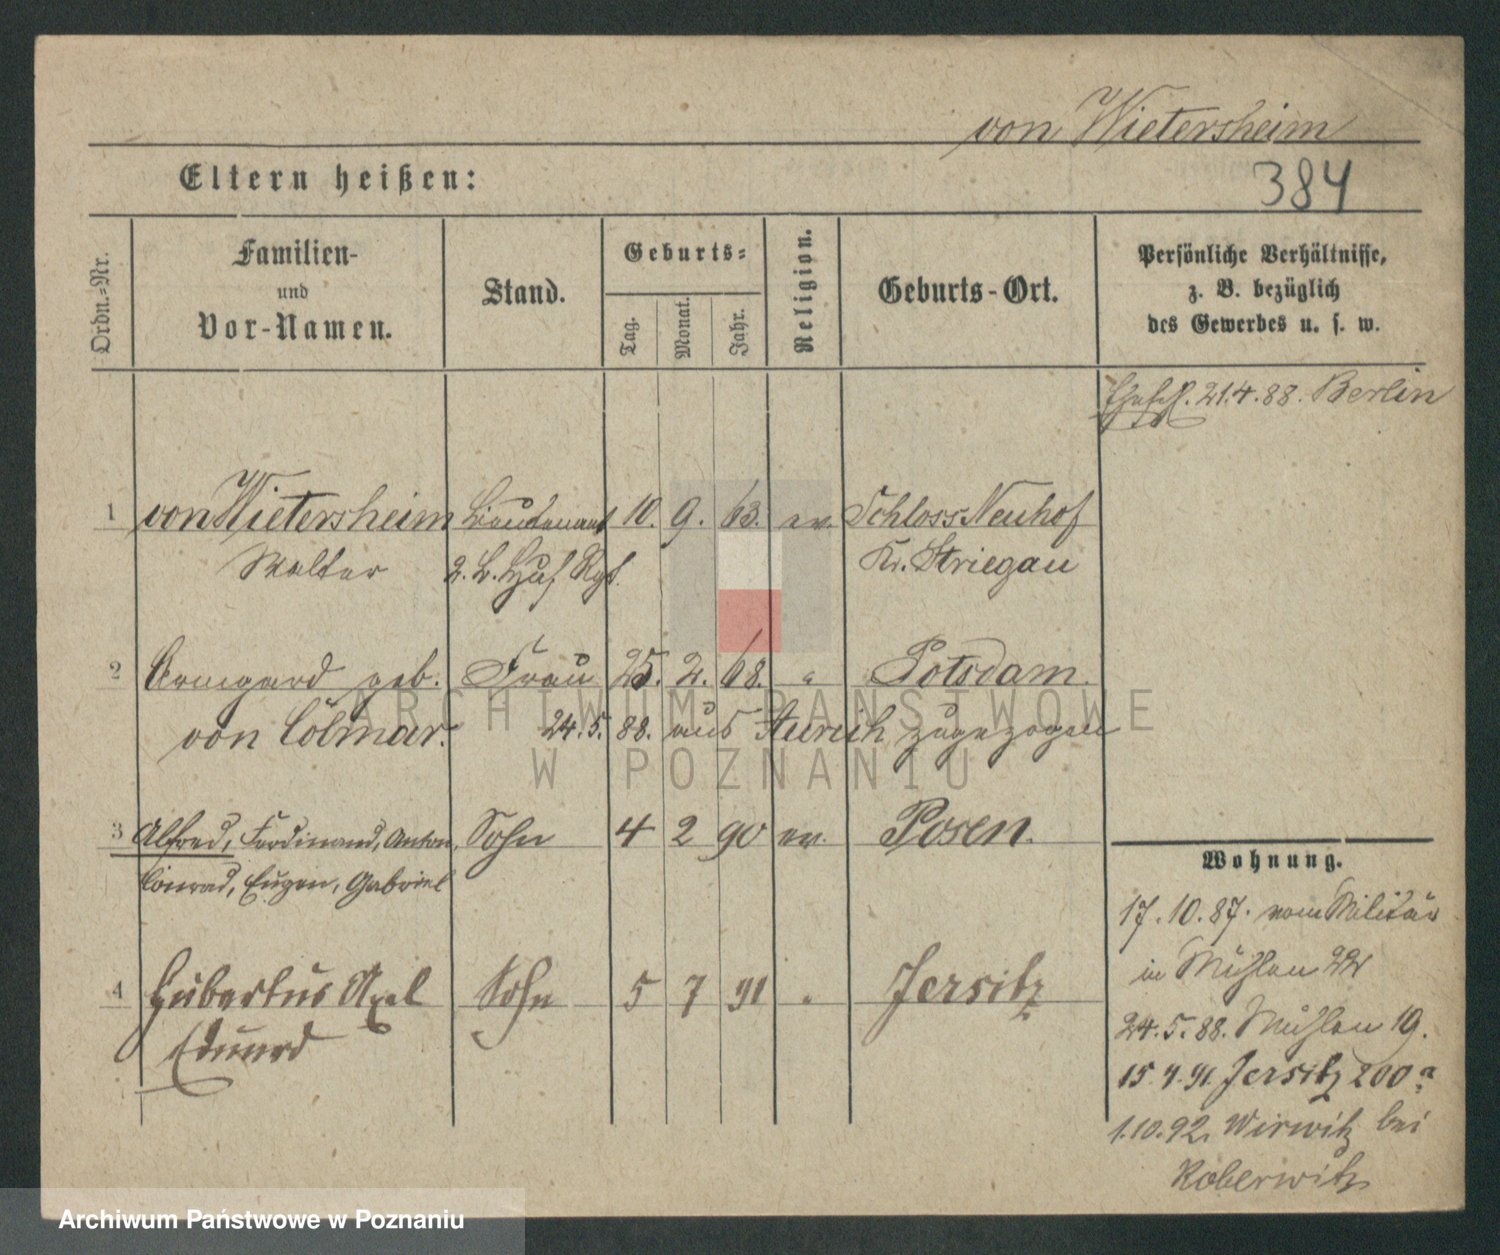 von Wietersheim
Eltern heißen:
384
Ordn.-Nr.
Familien-
und
Vor-Namen.
Stand.
Geburts-
Tag.
Monat.
Jahr.
Religion.
Geburts-Ort.
Persönliche Verhältnisse,
z. B. bezüglich
des Gewerbes u. s. w.
Ehesch. 21.4.88. Berlin
1 von Wietersheim Lieutenant 10. 9. 63. ev. Schloss Neuhof
Walter 2. L. Hus. Rgt. Kr. Striegau
2 Armgard geb. Frau 25. 2. 68. " Potsdam.
von Cölmar. 24.5.88. aus Aurich zugezogen
3 Alfred, Ferdinand, Anton, Sohn 4 2 90 ev. Posen.
Conrad, Eugen, Gabriel
4 Hubertus Axel Sohn 5 7 91 " Jersitz
Eduard
Wohnung.
17.10.87. vom Militär
in Mühlen
24.5.88. Mühlen 19.
15.4.91. Jersitz 200a
1.10.92. Wirwitz bei
Koberwitz
ARCHIWUM PAŃSTWOWE
W POZNANIU
Archiwum Państwowe w Poznaniu